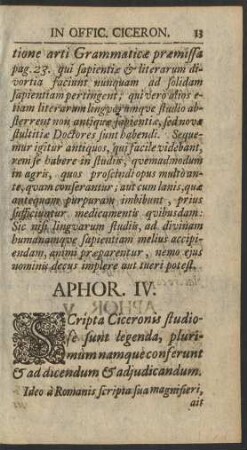 IN OFFIC. CICERON. 33
tione arti Grammaticæ præmissa
pag. 23. qui sapientiæ & literarum di-
vortia faciunt nunquam ad solidam
sapientiam pertingent; qui vero alios e-
tiam literarum lingvarumqve studio ab-
sterrent non antiquæ sapientiæ, sed novæ
stultitiæ Doctores sunt habendi. Seque-
mur igitur antiquos, qui facile videbant,
rem se habere in studiis, quemadmodum
in agris, quos proscindi opus multo an-
te, quam conserantur; aut cum lanis, quæ
anteqvam purpuram imbibunt, prius
sufficiuntur medicamentis qvibusdam:
Sic nisi lingvarum studiis, ad divinam
humanamqve sapientiam melius accipi-
endam, animi præparentur, nemo ejus
nominis decus implere aut tueri potest.
APHOR. IV.
SCripta Ciceronis studio-
se sunt legenda, pluri-
mum namque conferunt
& ad dicendum & adjudicandum.
Ideo à Romanis scripta sua magnifieri,
ait